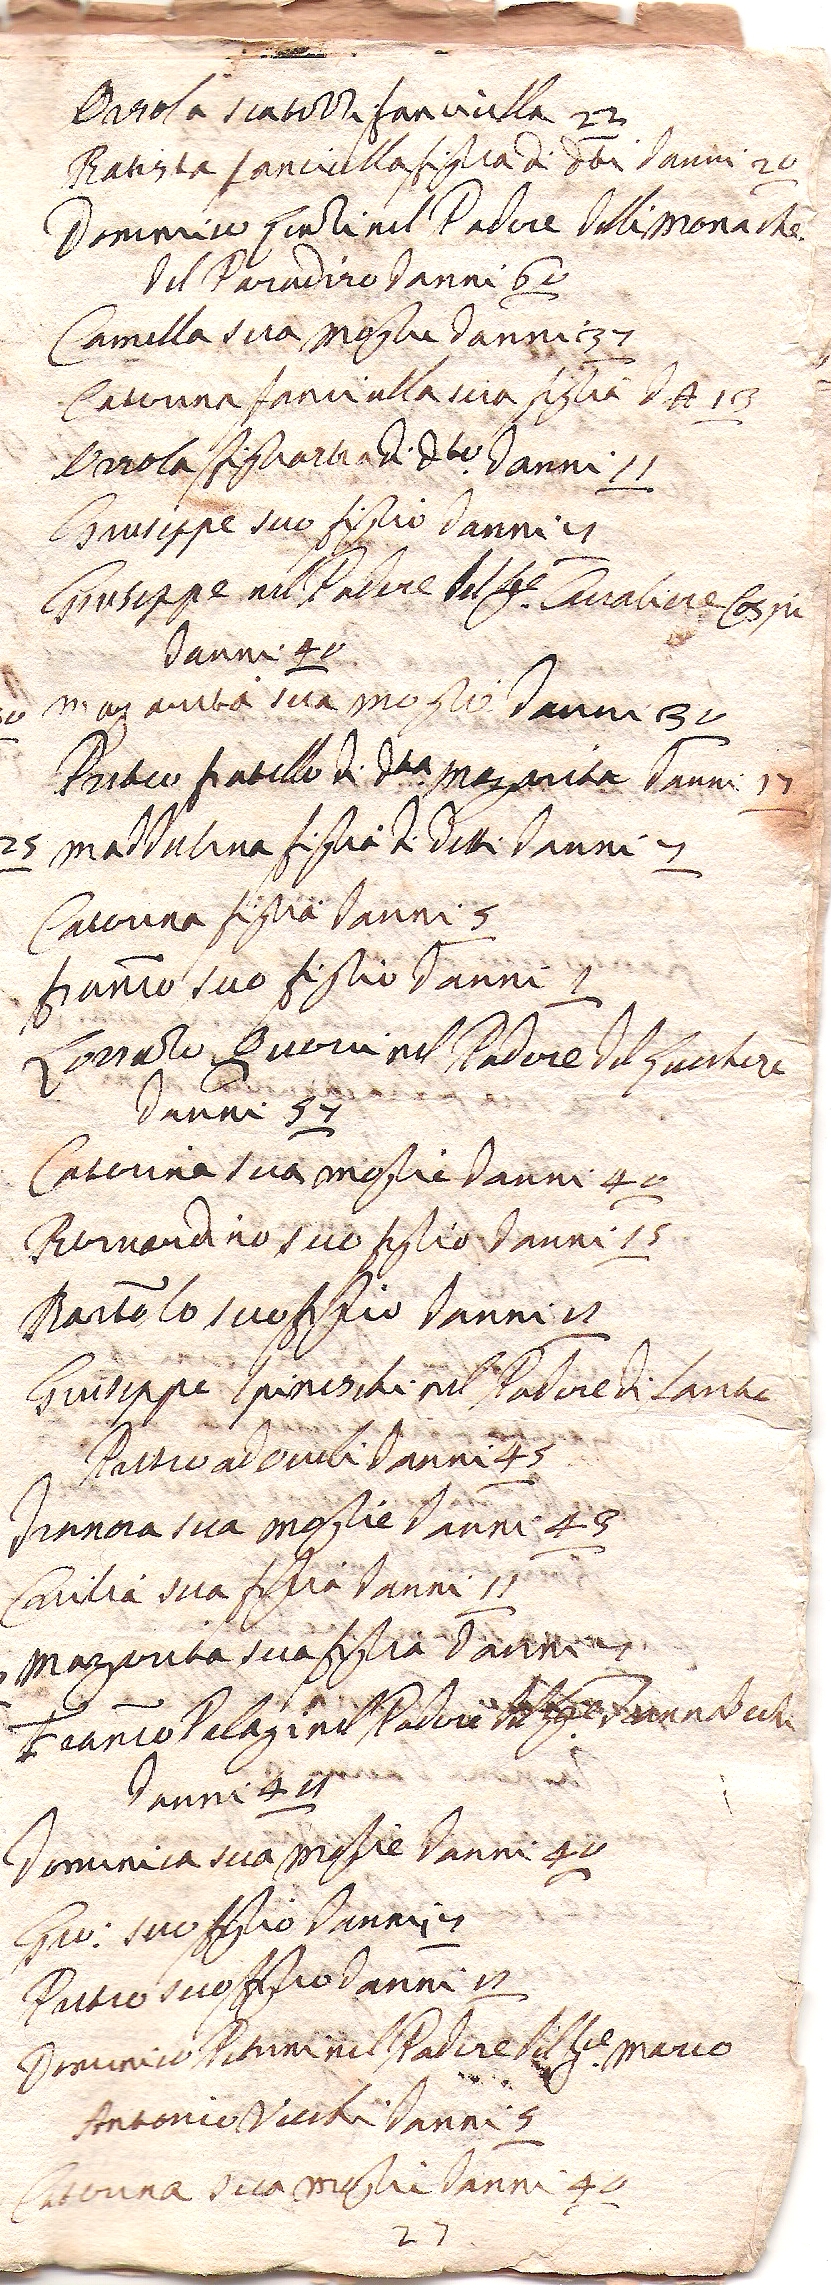 Orsola fanciulla 22
Batista fanciulla figlia di dti d'anni 20
Domenico nel Podere delle Monache
del Paradiso d'anni 60
Camilla sua moglie d'anni 37
Caterina fanciulla sua figlia d'A 13
Orsola figliastra di dto d'anni 11
Giuseppe suo figlio d'anni
Giuseppe nel Podere del Sre Cavaliere Cospi
d'anni 40
30 Margarita sua moglie d'anni 30
Pietro fratello di dta Margarita d'anni 17
25 Maddalena figlia di detti d'anni 7
Caterina figlia d'anni 5
Franco suo figlio d'anni 2
Lorenzo nel Podere del
d'anni 57
Caterina sua moglie d'anni 40
Bernardino suo figlio d'anni 15
Bartolo suo figlio d'anni 12
Giuseppe Spineschi nel Podere di Sante
Pietro ad Ovili d'anni 45
sua moglie d'anni 43
Cecilia sua figlia d'anni 11
Margarita sua figlia d'anni 7
Franco Pelagi nel Podere del Sre
d'anni 42
Domenica sua moglie d'anni 40
Gio: suo figlio d'anni
Pietro suo figlio d'anni 12
Domenico nel Podere del Sre Marco
Antonio d'anni 5
Caterina sua moglie d'anni 40
27